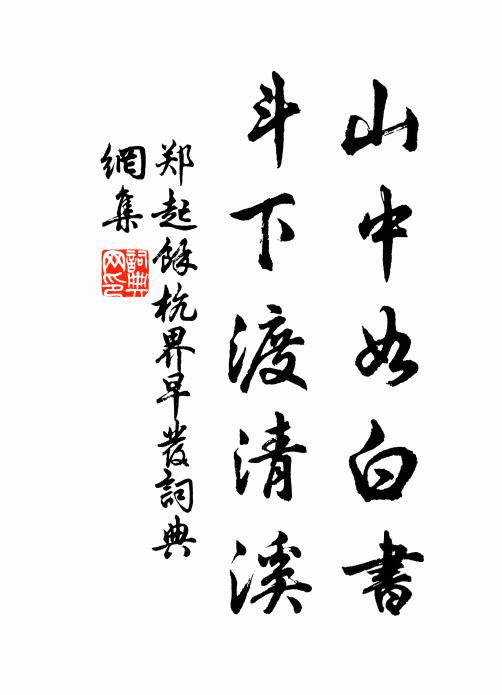 山中如白書
斗下渡清溪
郑起餘杭界早發詞典
網集
詞典
网印